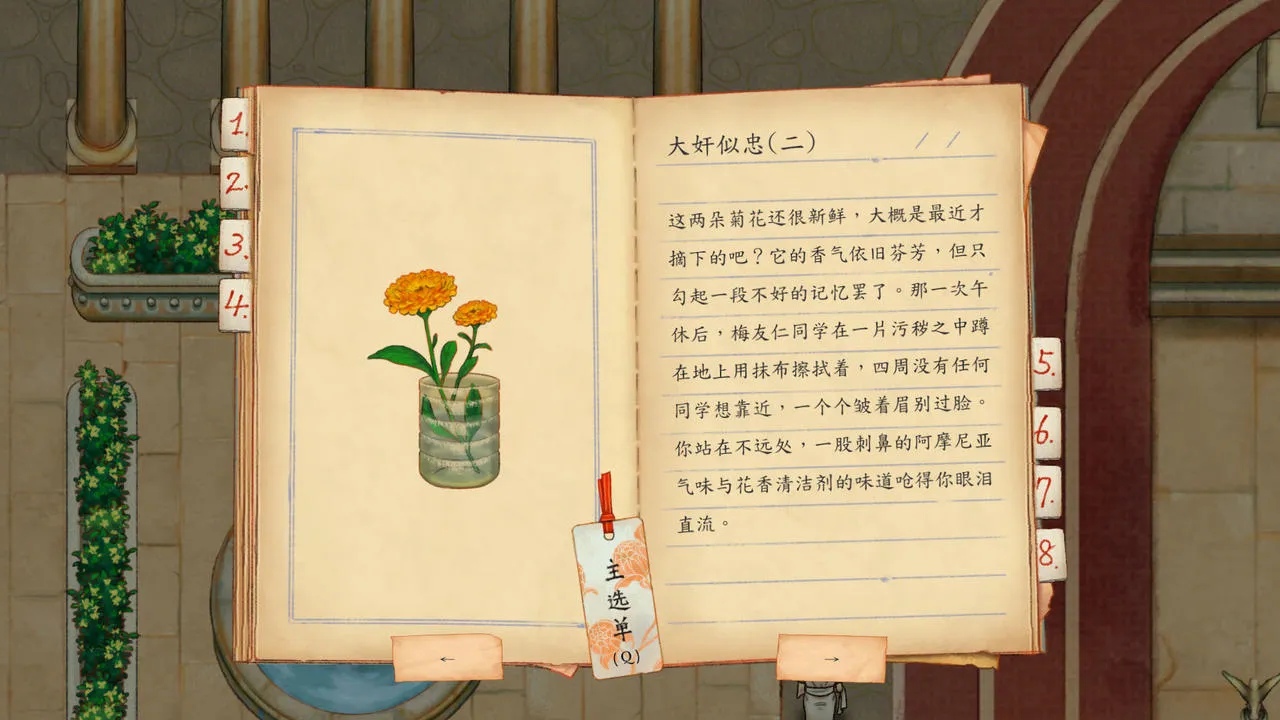 1.
2.
3.
4.
大奸似忠(二)
/ /
这两朵菊花还很新鲜，大概是最近才
摘下的吧？它的香气依旧芬芳，但只
勾起一段不好的记忆罢了。那一次午
休后，梅友仁同学在一片污秽之中蹲
在地上用抹布擦拭着，四周没有任何
同学想靠近，一个个皱着眉别过脸。
你站在不远处，一股刺鼻的阿摩尼亚
气味与花香清洁剂的味道呛得你眼泪
直流。
5.
6.
7.
8.
主选单
(Q)
←
→